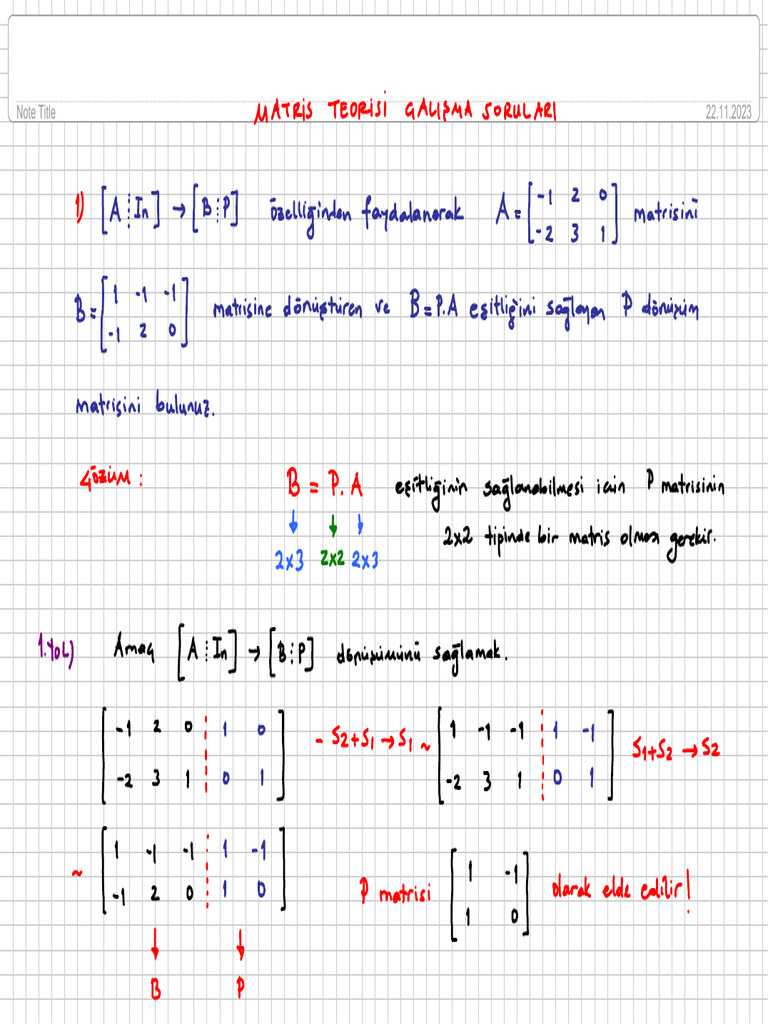 Note Title
MATRİS TEORİSİ ÇALIŞMA SORULARI
22.11.2023
1) [A ⋮ In] → [B ⋮ P] özelliğinden faydalanarak A = [-1 2 0; -2 3 1] matrisini
B = [1 -1 -1; -1 2 0] matrisine dönüştüren ve B = P.A eşitliğini sağlayan P dönüşüm
matrisini bulunuz.
ÇÖZÜM : B = P. A eşitliğinin sağlanabilmesi için P matrisinin
↓ ↓ ↓ 2x2 tipinde bir matris olması gerekir.
2x3 2x2 2x3
1.YOL) Amaç [A ⋮ In] → [B ⋮ P] dönüşümünü sağlamak.
[-1 2 0 ⋮ 1 0; -2 3 1 ⋮ 0 1] - S2+S1 → S1 ~ [1 -1 -1 ⋮ 1 -1; -2 3 1 ⋮ 0 1] S1+S2 → S2
~ [1 -1 -1 ⋮ 1 -1; -1 2 0 ⋮ 1 0] P matrisi [1 -1; 1 0] olarak elde edilir!
↓ ↓
B P